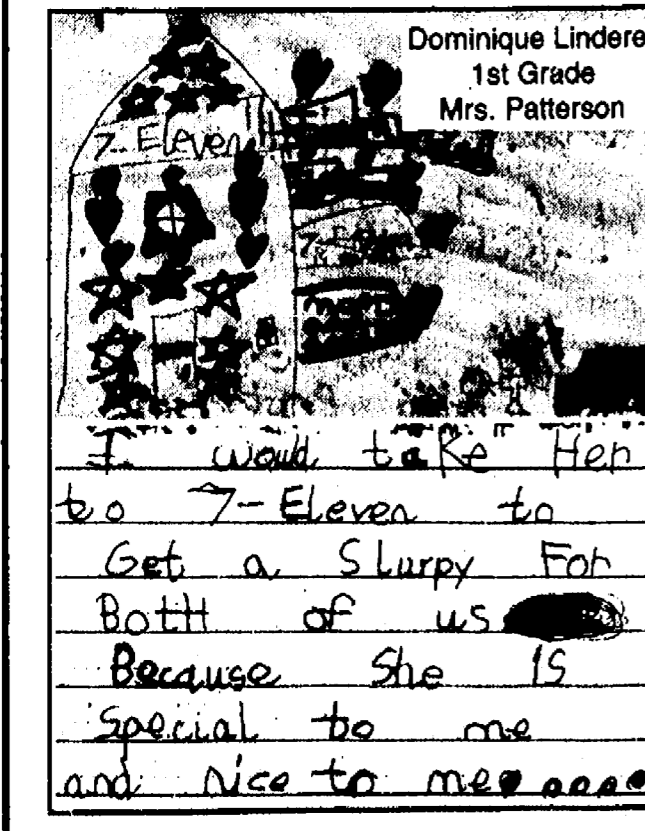 Dominique Lindere
1st Grade
Mrs. Patterson
7-Eleven
I would take Her
to 7-Eleven to
Get a Slurpy For
BotH of us
Because She is
Special to me
and nice to me